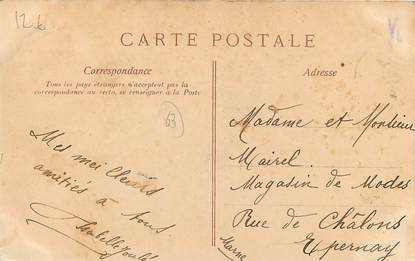 12.6
CARTE POSTALE
Correspondance
Tous les pays étrangers n'acceptent pas la
correspondance au recto, se renseigner à la Poste
63
Mes meilleurs
amitiés à tous
Adresse
Madame et Monsieur
Mairel
Magasin de Modes
Rue de Châlons
Epernay
Marne